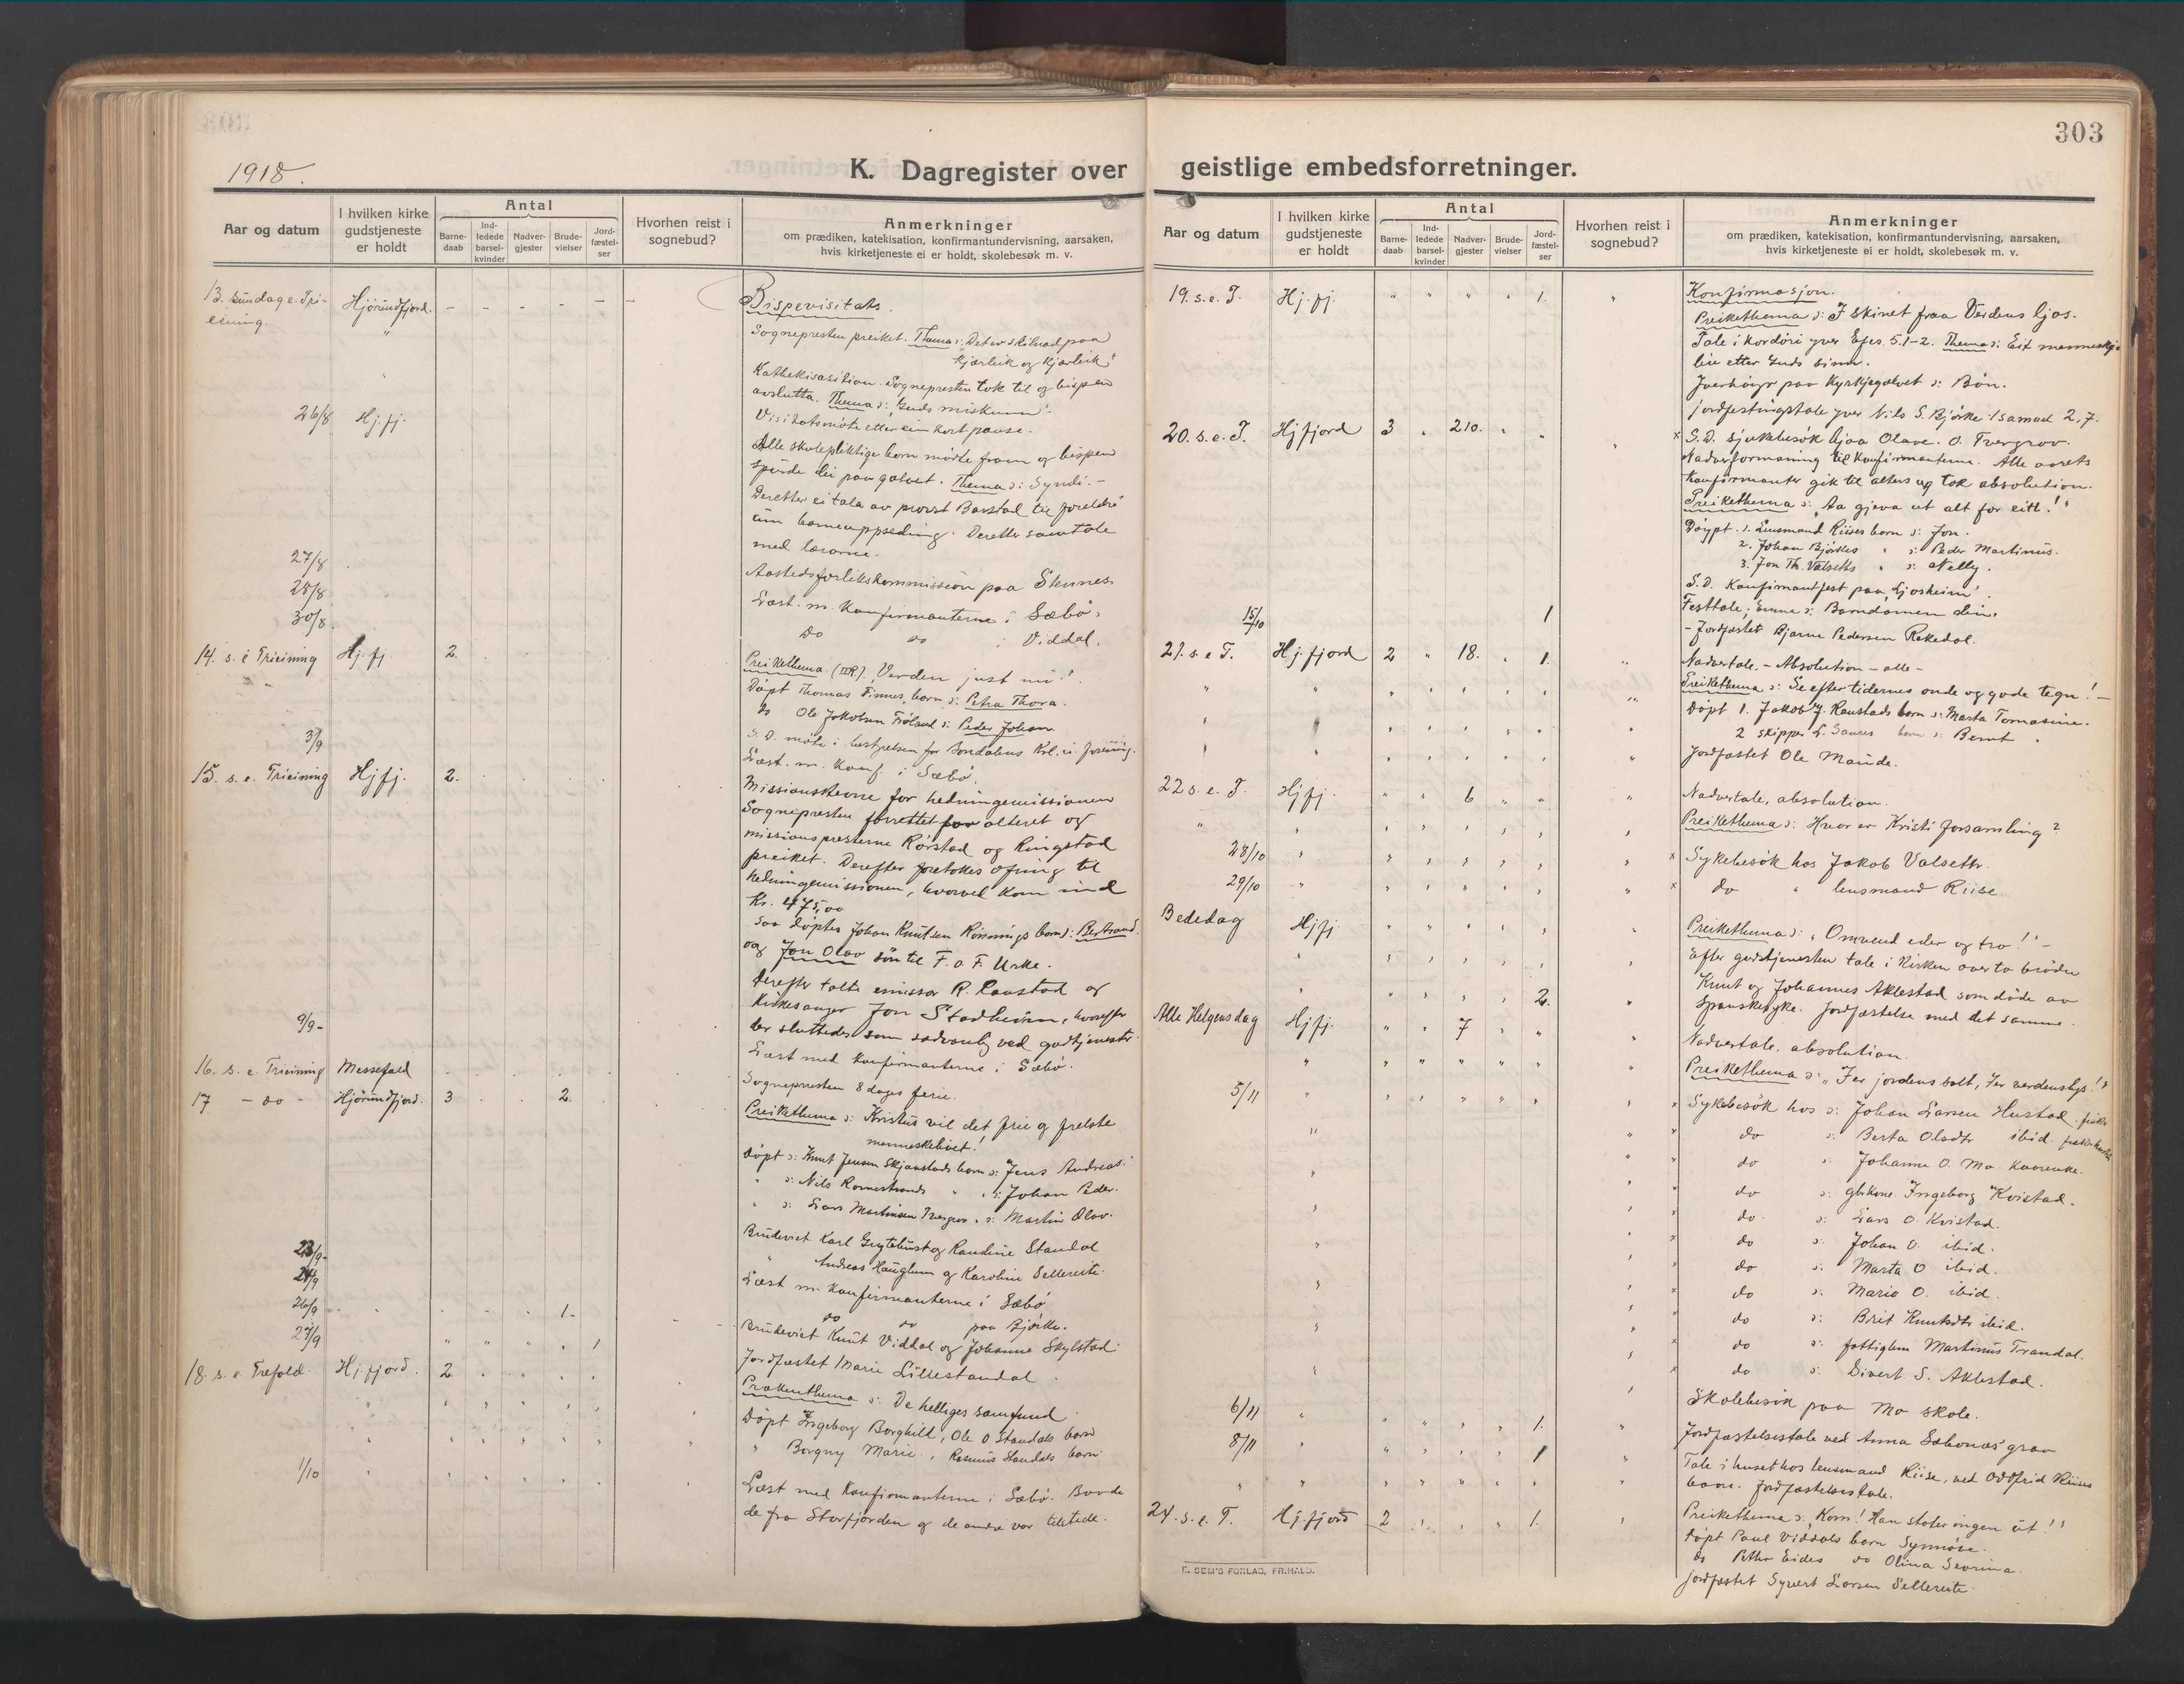 303
1918.
K. Dagregister over geistlige embedsforretninger.
Aar og datum
I hvilken kirke gudstjeneste er holdt
Antal
Barne-daab
Ind-ledede barsel-kvinder
Nadver-gjester
Brude-vielser
Jord-fæstel-ser
Hvorhen reist i sognebud?
Anmerkninger
om prædiken, katekisation, konfirmantundervisning, aarsaken,
hvis kirketjeneste ei er holdt, skolebesøk m. v.
13. Sundag e. Tri-
eining.
Hjörundfjord. - - - - -
Bispevisitats.
Sognepresten preiket. Thema: Det er skilnad paa
Kjærleik og Kjærleik"
Kathekisasition. Sognepresten tok til og bispen
avslutta. Thema: "Guds miskunn"
26/8 Hj.fj.
Visitatsmöte etter ein kort pause.
Alle skuleplektige born mötte fram og bispen
spurde dei paa golvet. Thema: Syndi. -
Deretter ei tala av provst Barstad til foreldre
um barneuppseding. Deretter samtale
med lærarne.
27/8
Aastedsforlikskommission paa Stennes
28/8
Læst. m. Konfirmanterne i Sæbö.
30/8
do do i Viddal.
14. s. e Trieining Hj.fj. 2.
Preikethema (IIIR) "Verden just nu"!
Döpt Thomas Finnes born: Petra Thora.
do Ole Jakobsen : Peder Johan
S. D. möte i bestyrelsen for Bondalens Krl. u. forening.
3/9
Læst. m. Konf. i Sæbö.
15. s. e. Trieining Hjfj. 2.
Missionsstevne for hedningemissionen
Sognepresten forrettet for alteret og
missionspresterne Rörstad og Ringstad
preiket. Derefter foretokes ofring til
hedningemissionen, hvorved kom ind
Kr. 475,00
Saa döptes Johan Knutsen Rönnings born: Bertrand.
og Jon Olav sön til F. o F. Urke.
Derefter talte emissær R. Raustad og
Kirkesanger Jon Stadheim, hvorefter
der sluttedes som sedvanlig ved gudstjenester.
9/9-
Læst med Konfirmanterne i Sæbö.
16. s. e. Trieining Messefald
Sognepresten 8 dages ferie.
17 - do - Hjörundfjord. 3 2.
Preikethema: Kristus vil det frie og frelste
menneskelivet!
Döpt: Knut Jensen Skjaastads born: "Jens Andreas."
" : Nils Romestrands " : Johan Peder.
" : Lars Martinsen Tvergrov " : Martin Olav.
Brudeviet Karl Grytebust og Raudine Standal
" Andreas Hauglum og Karoline Sellereite.
23/9-
Læst m. Konfirmanterne i Sæbö
24/9
do do paa Bjørke.
26/9 1.
Brudeviet Knut Viddal og Johanne Skylstad
27/9 1
Jordfæstet Marie Lillestandal
18. s. e. Trefold. Hj.fjord. 2
Prækenthema: De helliges samfund
Döpt Ingeborg Borghild, Ole O Standals born
" Borgny Marie, Rasmus Standals born
1/10
Læst med Konfirmanterne i Sæbö. Baade
de fra Storfjorden og de andre var tilstede.
Aar og datum
I hvilken kirke gudstjeneste er holdt
Antal
Barne-daab
Ind-ledede barsel-kvinder
Nadver-gjester
Brude-vielser
Jord-fæstel-ser
Hvorhen reist i sognebud?
Anmerkninger
om prædiken, katekisation, konfirmantundervisning, aarsaken,
hvis kirketjeneste ei er holdt, skolebesøk m. v.
19. s. e. T. Hj.fj. " " " " 1. "
Konfirmasjon.
Preikethema: I skinet fraa Verdens ljos.
Tale i kordöri yver Efes. 5.1-2. Thema: Eit menneskje-
liv etter Guds sinn.
Yverhöyr paa Kyrkjegolvet: Bön.
Jordfestingstale yver Nils S. Bjørke. 1 Samuel 2,7.
20. s. e. T. Hjfjord 3 " 210. " "
S. D. sjukebesök hjaa Olave. O. Tvergrov.
Nadverformaning til Konfirmanterne. Alle aarets
Konfirmanter gik til alters og tok absolution.
Preikethema: "Aa gjeva ut alt for eitt!"
Döypt. 1. Lensmand Riises born: Jon.
2. Johan Bjørkes " : Peder Martinus.
3. Jon Th. Valsetts " : Nelly.
S. D. Konfirmantfest paa "Ljosheim".
Festtale; Emne: Barndomen din.
15/10 1
- Jordfæstet Bjarne Pedersen Rekedal.
21. s. e T. Hj.fjord 2 " 18. " 1.
Nadvertale. - Absolution - alle -
Preikethema: Se efter tidernes onde og gode tegn! -
Döpt 1. Jakob J. Raustads born: Marta Tomasine.
2 skipper L. Saures born: Bernt.
Jordfæstet Ole Maude.
22 s. e. T. Hjfj. " " 6 " "
Nadvertale, absolution.
Preikethema: Hvor er Kristi forsamling?
28/10
x Sykebesök hos Jakob Valsett.
29/10
x do " lensmand Riise
Bededag Hjfj
Preikethema: "Omvend eder og tro!" -
Efter gudstjenesten tale i Kirken over to brödre
Knut og Johannes Aklestad som döde av
Spanskesyke. Jordfæstelse med det samme.
2.
Alle Helgensdag Hjfj. " " 7 " "
Nadvertale, absolution.
Preikethema: "I er jordens salt, I er verdens lys!"
5/11
x Sykebesök hos: Johan Larsen Hustad. fisker
do : Berta Olsdtr ibid.
do : Johanne O. Mo.
do : gbrkone Ingeborg Kvistad.
do : Lars O. Kvistad.
do : Johan O. ibid.
do : Marta O ibid.
do : Marie O. ibid.
do : Brit Knutsdtr ibid.
do : fattiglem Martinus Trandal.
do : Sivert. S. Aklestad.
6/11 1.
Skolebesök paa Mo skole.
Jordfæstelsestale ved Anna Sæbönes' grav
8/11 1
Tale i huset hos lensmand Riise, ved Oddfrid Riises
baare. Jordfæstelsestale.
24. s. e. T. Hj.fjord 2 1.
Preikethema: "Kom! Han støter ingen ut!"
Döpt Paul Viddals born Synnöve.
do Petter Eides do Olina Severina.
Jordfæstet Syvert Larsen Sellereite.
E. SEM'S FORLAG, FR.HALD.